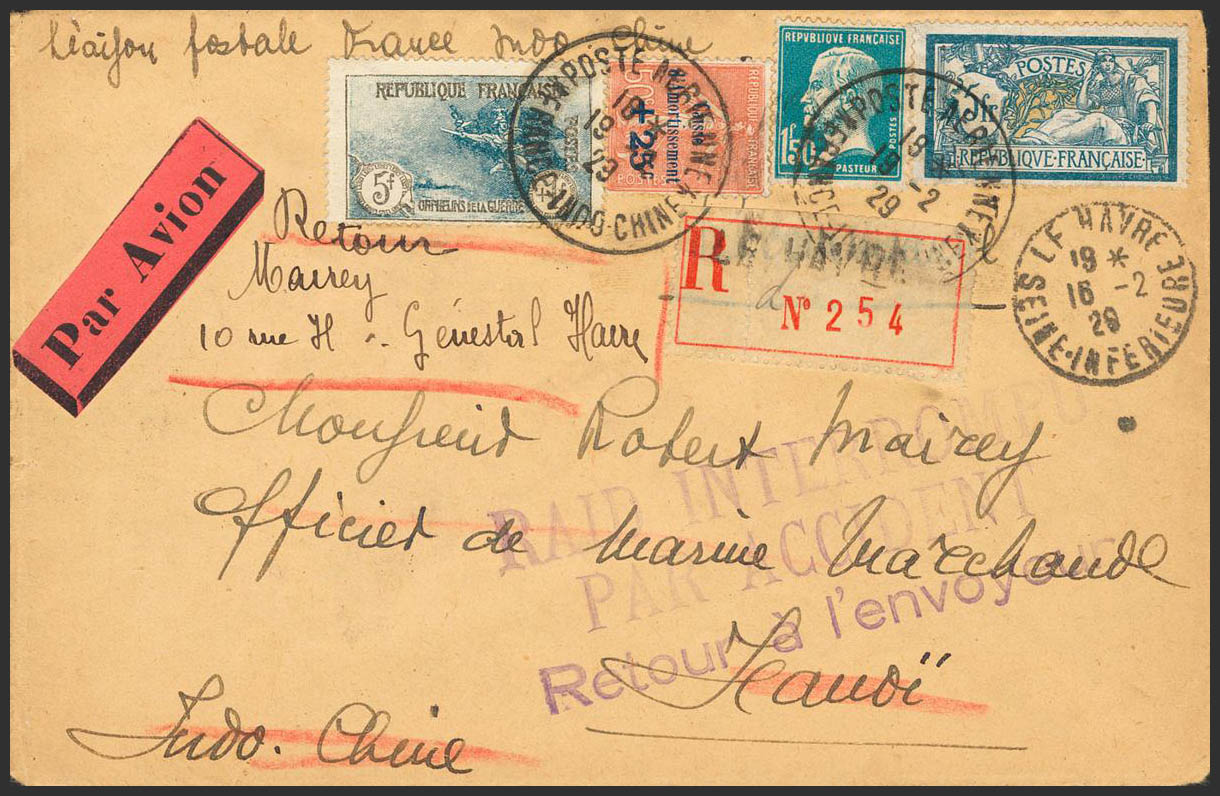 Liaison postale France Indo Chine
REPUBLIQUE FRANÇAISE
POSTES
5f
ORPHELINS DE LA GUERRE
50c
Caisse
d'Amortissement
+25c
REPUBLIQUE FRANÇAISE
POSTES
REPVBLIQUE FRANÇAISE
1f50
POSTES
PASTEUR
POSTES
5 f
REPUBLIQUE·FRANÇAISE
POSTE AERIENNE
FRANCE INDO-CHINE
19
19 -2
29
POSTE AERIENNE
FRANCE
19
19 -2
29
Par Avion
Retour
Mairey
10 rue H. Génestal Havre
R
LE HAVRE
Nº 254
LE HAVRE
19 *
16 -2
29
SEINE-INFERIEURE
Monsieur Robert Mairey
Officier de Marine Marchande
RAID INTERROMPU
PAR ACCIDENT
Retour à l'envoyeur
Hanoï
Indo. Chine